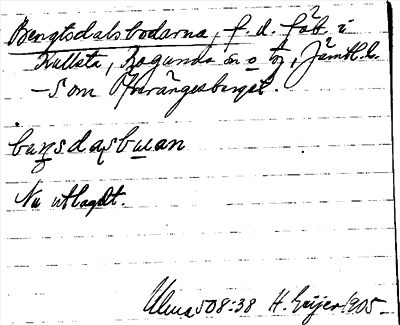 Bengtsdalsbodarna, f. d. fäb. i
Kullsta, Ragunda sn o tg, Jämtl. l.
– S om Överängesberget.
baŋsdaɽbuan
Nu utlagdt.
Ulma 508:38 H. Geijer 1905